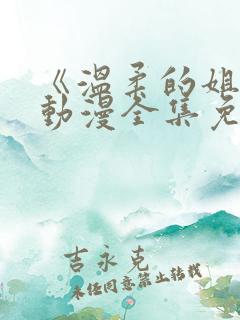 《温柔的姐
動漫全集免
吉永克
未经同意禁止转载